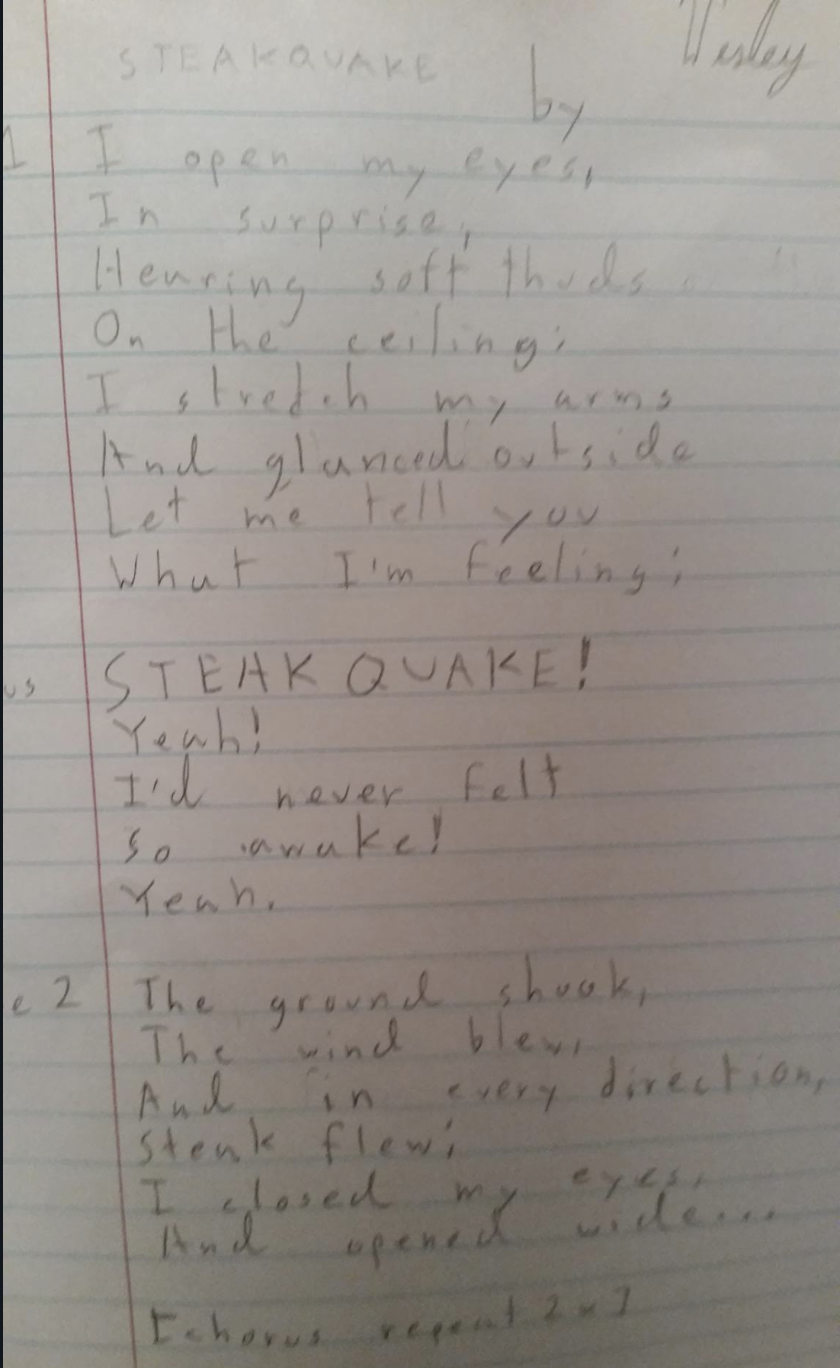 STEAKQUAKE by Wesley
1 I open my eyes,
In surprise,
Hearing soft thuds
On the ceiling;
I stretch my arms
And glanced outside
Let me tell you
What I'm feeling;
us STEAK QUAKE!
Yeah!
I'd never felt
So awake!
Yeah.
e 2 The ground shook,
The wind blew,
And in every direction,
Steak flew;
I closed my eyes,
And opened wide...
[chorus repeat 2x]